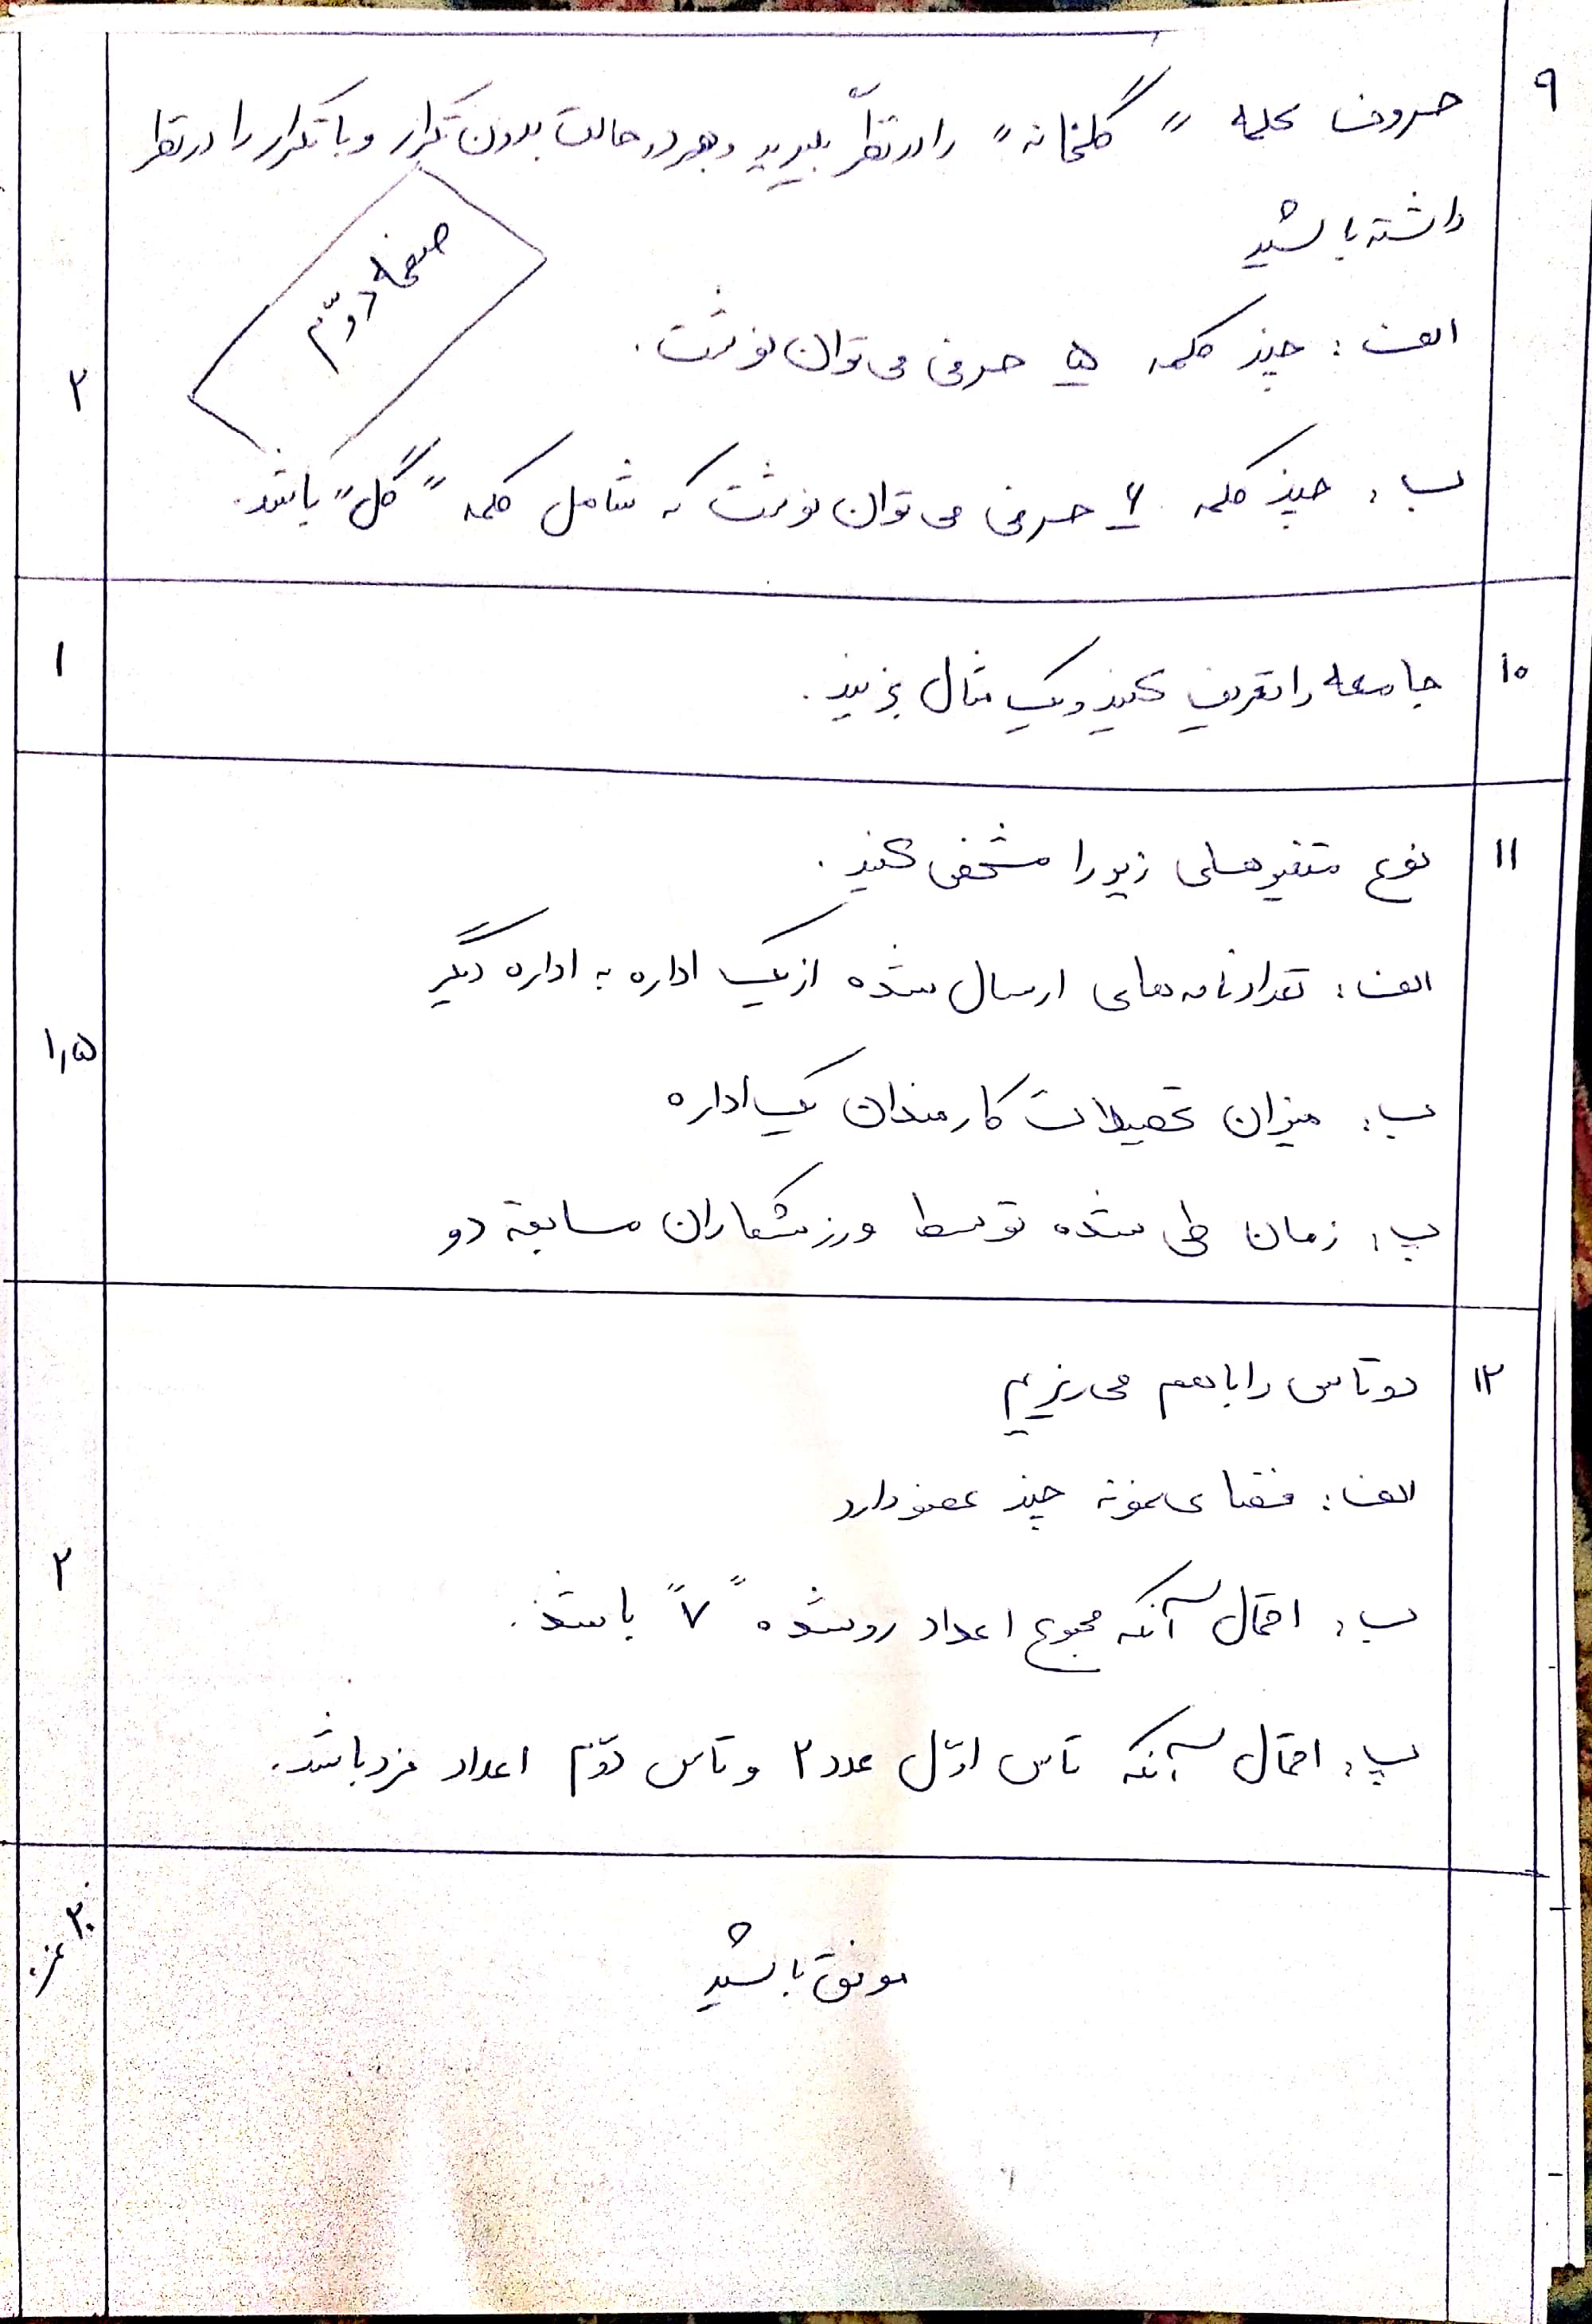 ۹
حروف کلمه "گلخانه" را در نظر بگیرید و هر دو حالت بدون تکرار و با تکرار را در نظر
داشته باشید
صفحه دوّم
الف: چند کلمه ۵ حرفی می توان نوشت.
۲
ب: چند کلمه ۶ حرفی می توان نوشت که شامل کلمه "گل" باشد.
۱۰
جامعه را تعریف کنید و یک مثال بزنید.
۱
۱۱
نوع متغیرهای زیر را مشخص کنید.
الف: تعداد نامه های ارسال شده از یک اداره به اداره دیگر
۱٫۵
ب: میزان تحصیلات کارمندان یک اداره
پ: زمان طی شده توسط ورزشکاران مسابقه دو
۱۲
دو تاس را با هم می ریزیم
الف: فضای نمونه چند عضو دارد
۲
ب: احتمال آنکه مجموع اعداد رو شده "۷" باشد.
پ: احتمال آنکه تاس اوّل عدد ۲ و تاس دوّم اعداد فرد باشد.
۲۰
موفق باشید